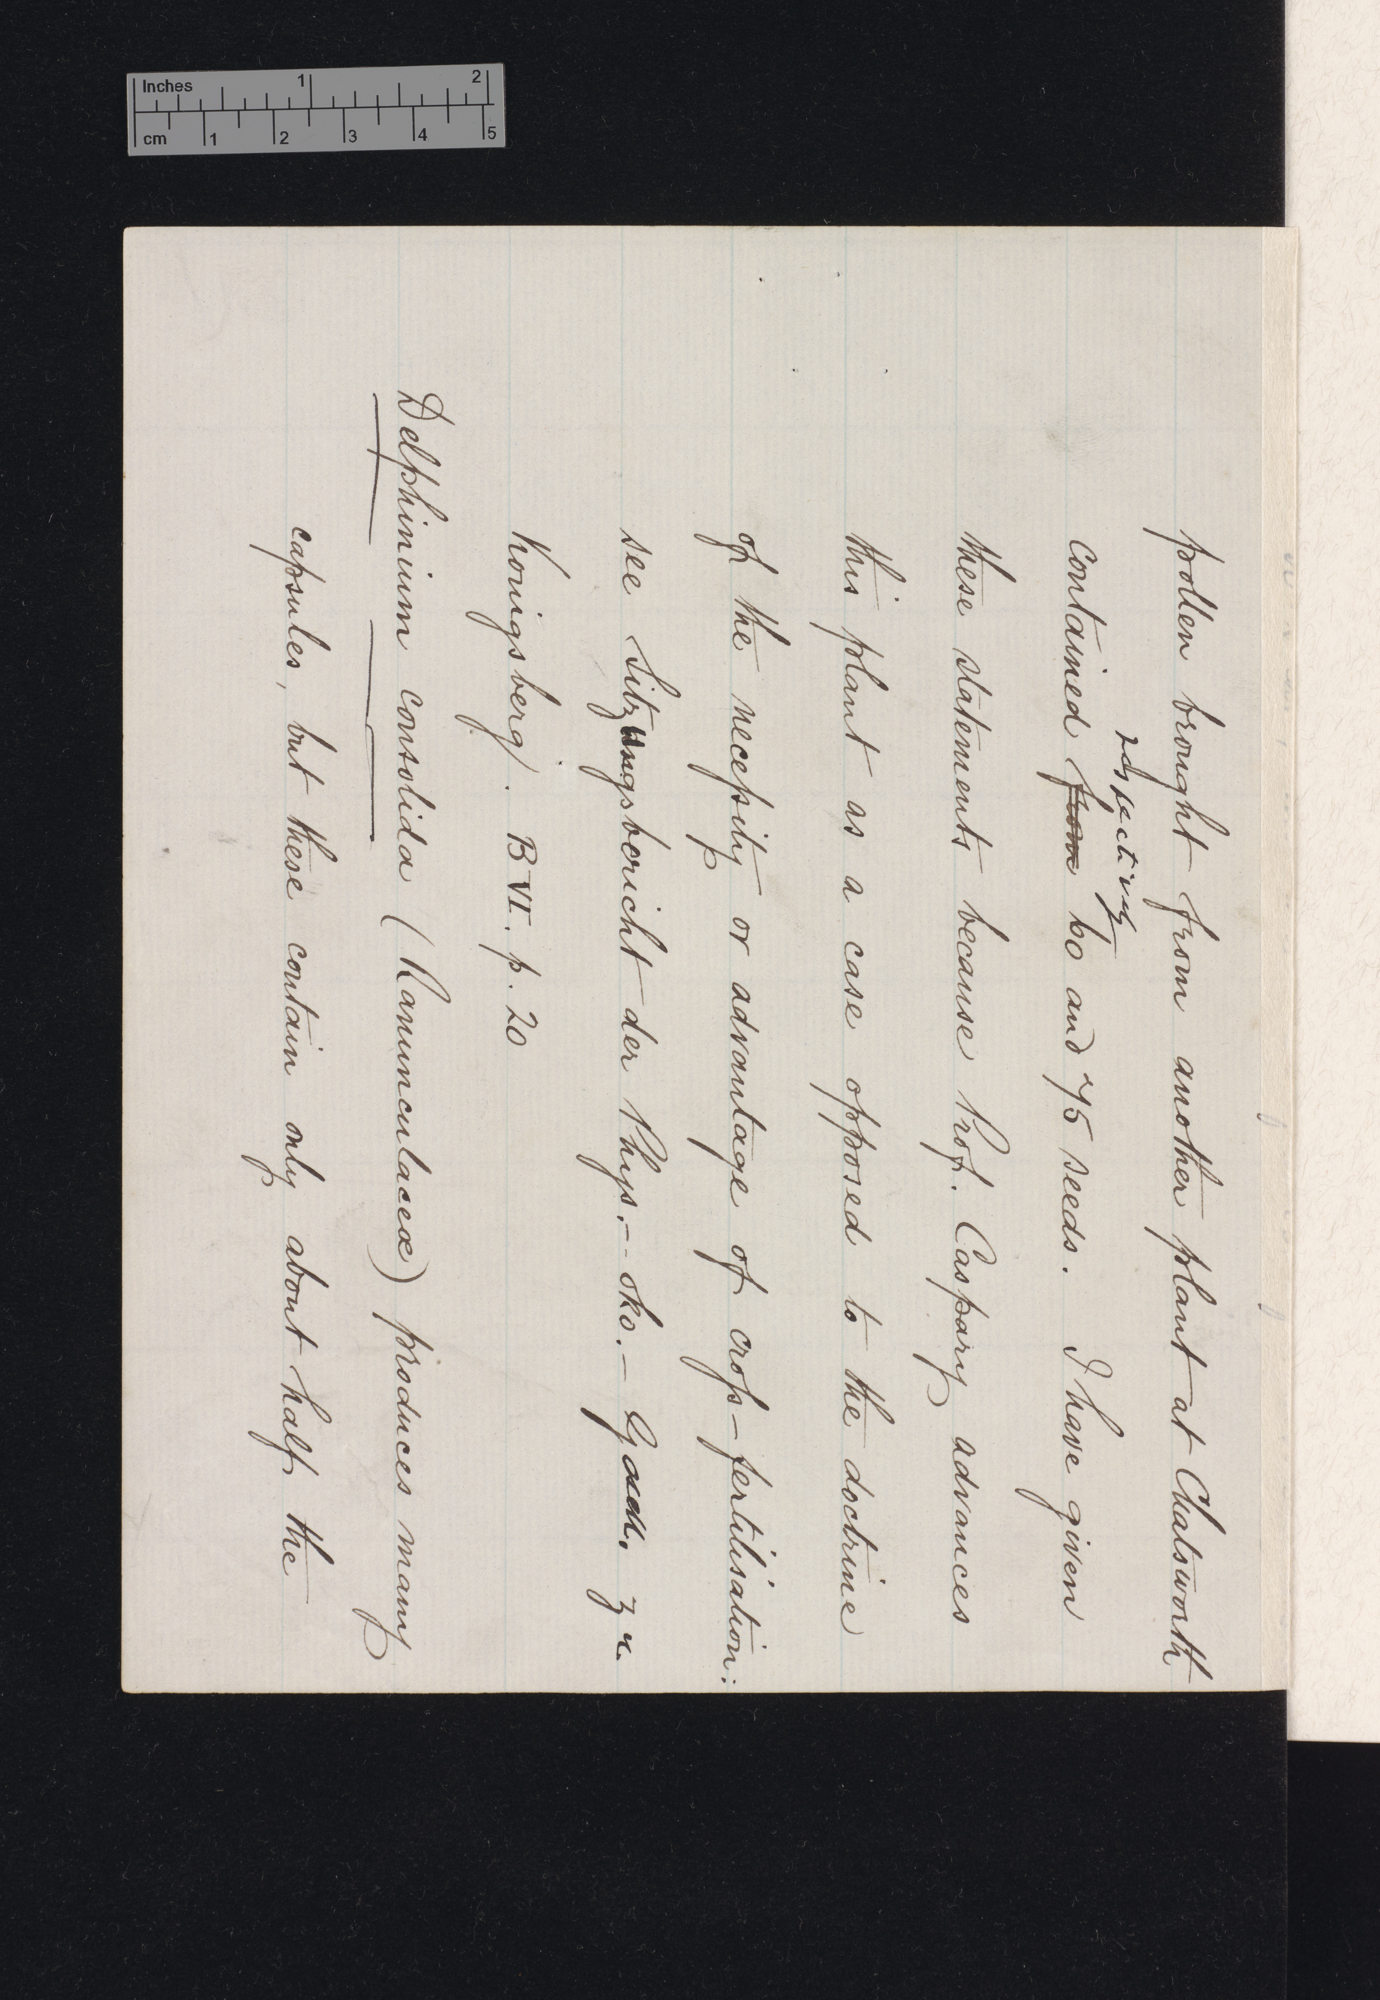 Inches 1 2
cm 1 2 3 4 5
pollen brought from another plant at Chatsworth
respectively
contained from 60 and 75 seeds. I have given
these statements because Prof. Caspary advances
this plant as a case opposed to the doctrine
of the necessity or advantage of cross-fertilisation:
see Sitzungsbericht der Phys.--oko.- Gesell. zu
Konigsberg. B VI. p. 20
Delphinium consolida (Ranunculaceæ) produces many
capsules, but these contain only about half the